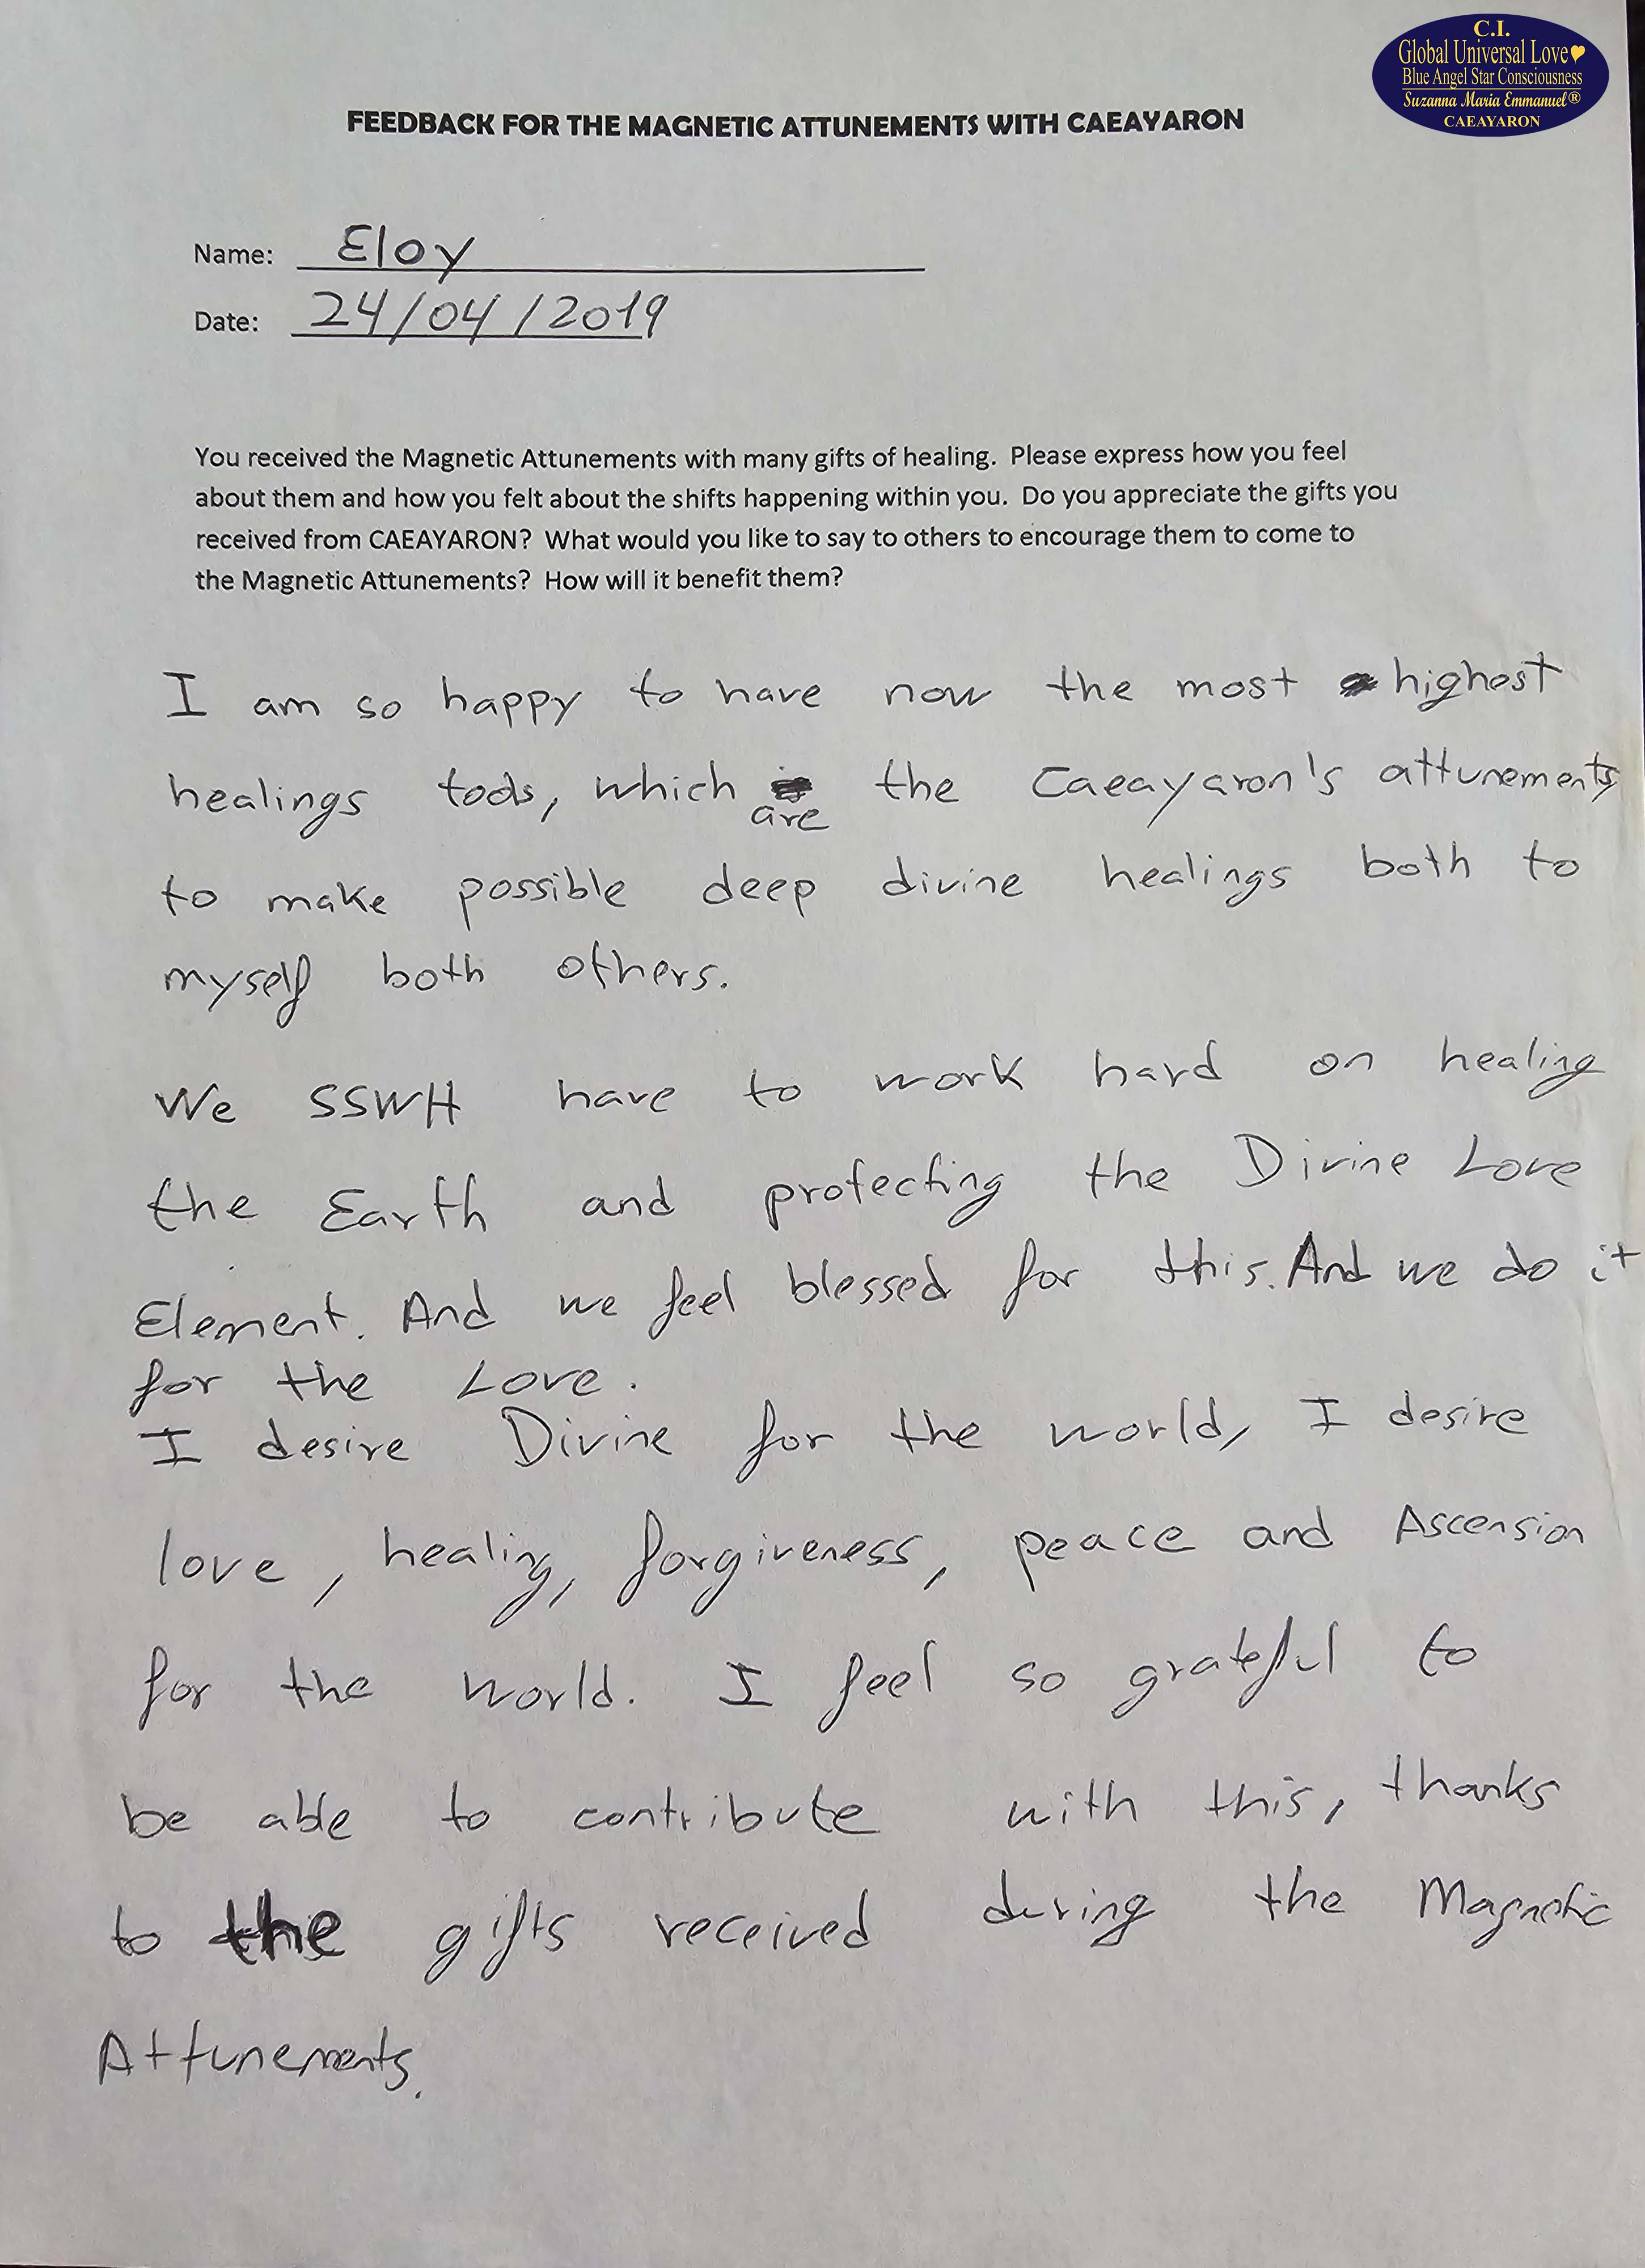 C.I.
Global Universal Love
Blue Angel Star Consciousness
Suzanna Maria Emmanuel®
CAEAYARON
FEEDBACK FOR THE MAGNETIC ATTUNEMENTS WITH CAEAYARON
Name: Eloy
Date: 24/04/2019
You received the Magnetic Attunements with many gifts of healing. Please express how you feel
about them and how you felt about the shifts happening within you. Do you appreciate the gifts you
received from CAEAYARON? What would you like to say to others to encourage them to come to
the Magnetic Attunements? How will it benefit them?
I am so happy to have now the most highest
healings tools, which are the Caeayaron's attunements
to make possible deep divine healings both to
myself both others.
We SSWH have to work hard on healing
the Earth and protecting the Divine Love
Element. And we feel blessed for this. And we do it
for the Love.
I desire Divine for the world, I desire
love, healing, forgiveness, peace and Ascension
for the world. I feel so grateful to
be able to contribute with this, thanks
to the gifts received during the Magnetic
Attunements.